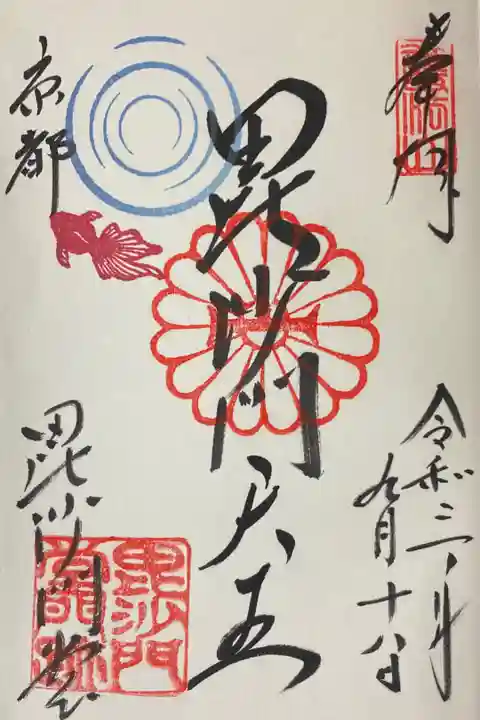 奉拝
令和三年
九月十八日
毘沙門天王
京都
毘沙門堂